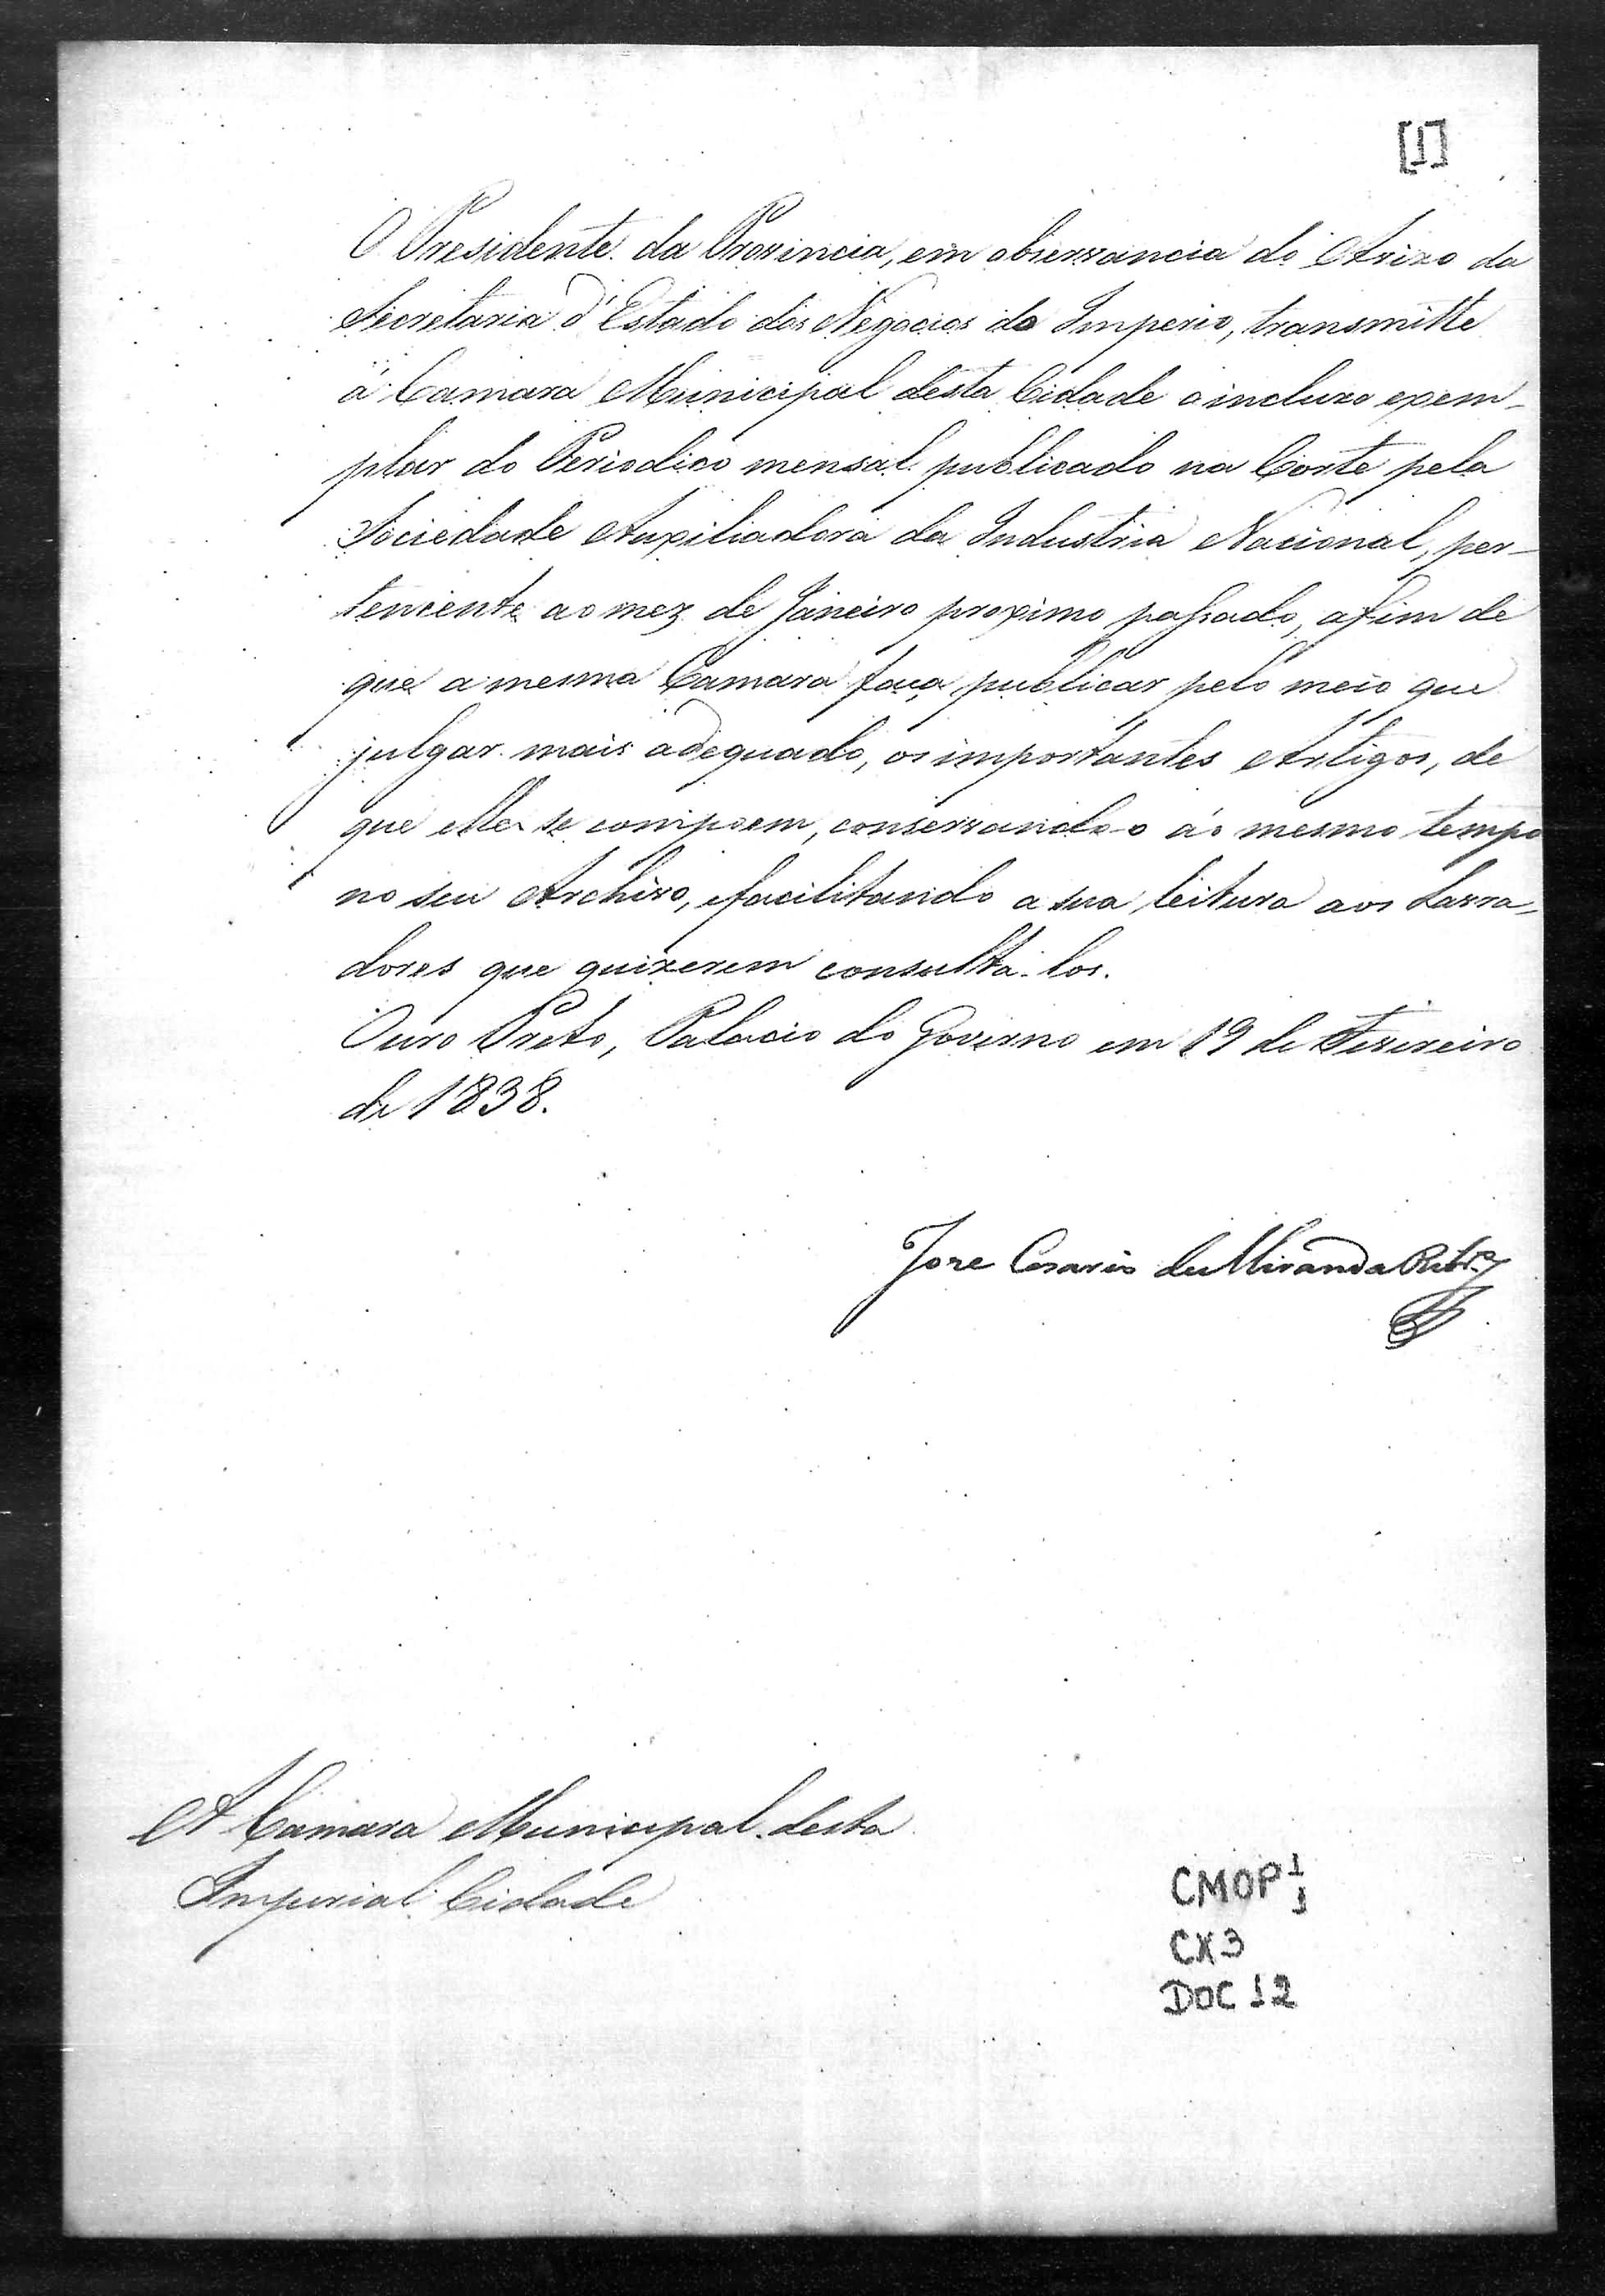 [1]
O Presidente da Provincia, em observancia do Avizo da
Secretaria d'Estado dos Negocios do Imperio, transmitte
á Camara Municipal desta Cidade o incluzo exem-
plar do Periodico mensal publicado na Corte pela
Sociedade Auxiliadora da Industria Nacional, per-
tencente ao mez de Janeiro proximo passado, afim de
que a mesma Camara faça publicar pelo meio que
julgar mais adequado, os importantes Artigos, de
que elle se compoem, conservando-o áo mesmo tempo
no seu Archivo, efacilitando a sua leitura aos Lavra-
dores que quizerem consultá-los.
Ouro Preto, Palacio do Governo em 19 de Fevereiro
de 1838.
Jose Cesario de Miranda Ribr.º
A Camara Municipal desta
Imperial Cidade
CMOP 1/1
CX3
DOC 12